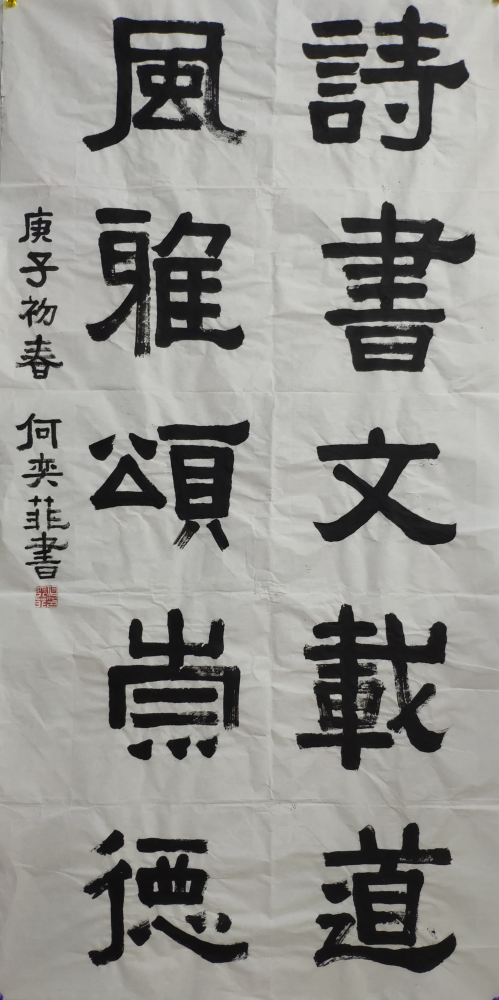 詩書文載道
風雅頌崇德
庚子初春 何奕菲書